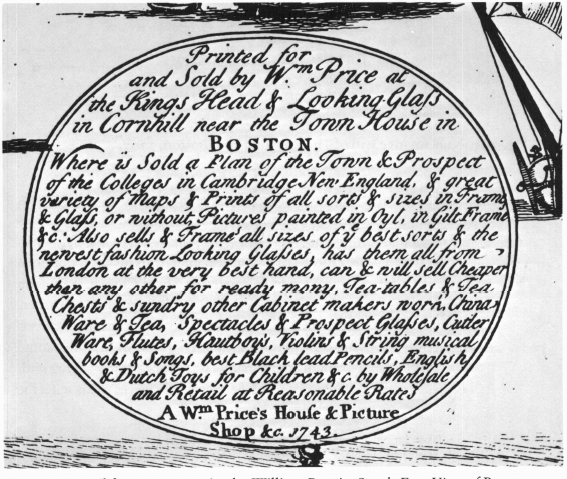 Printed for
and Sold by Wm Price at
the Kings Head & Looking Glass
in Cornhill near the Town House in
BOSTON.
Where is Sold a Plan of the Town & Prospect
of the Colleges in Cambridge New England, & great
variety of Maps & Prints of all sorts & sizes in Frame
& Glass, or without, Pictures painted in Oyl, in Gilt Frame
&c. Also sells & Frame all sizes of ye best sorts & the
newest fashion Looking Glasses, has them all from
London at the very best hand, can & will sell Cheaper
then any other for ready mony, Tea-tables & Tea
Chests & sundry other Cabinet makers work, China
Ware & Tea, Spectacles & Prospect Glasses, Cutler
Ware, Flutes, Hautboys, Violins & String musical
books & Songs, best Black lead Pencils, English
& Dutch Toys for Children &c. by Wholesale
and Retail at Reasonable Rates
A Wm Price's House & Picture
Shop &c. 1743.